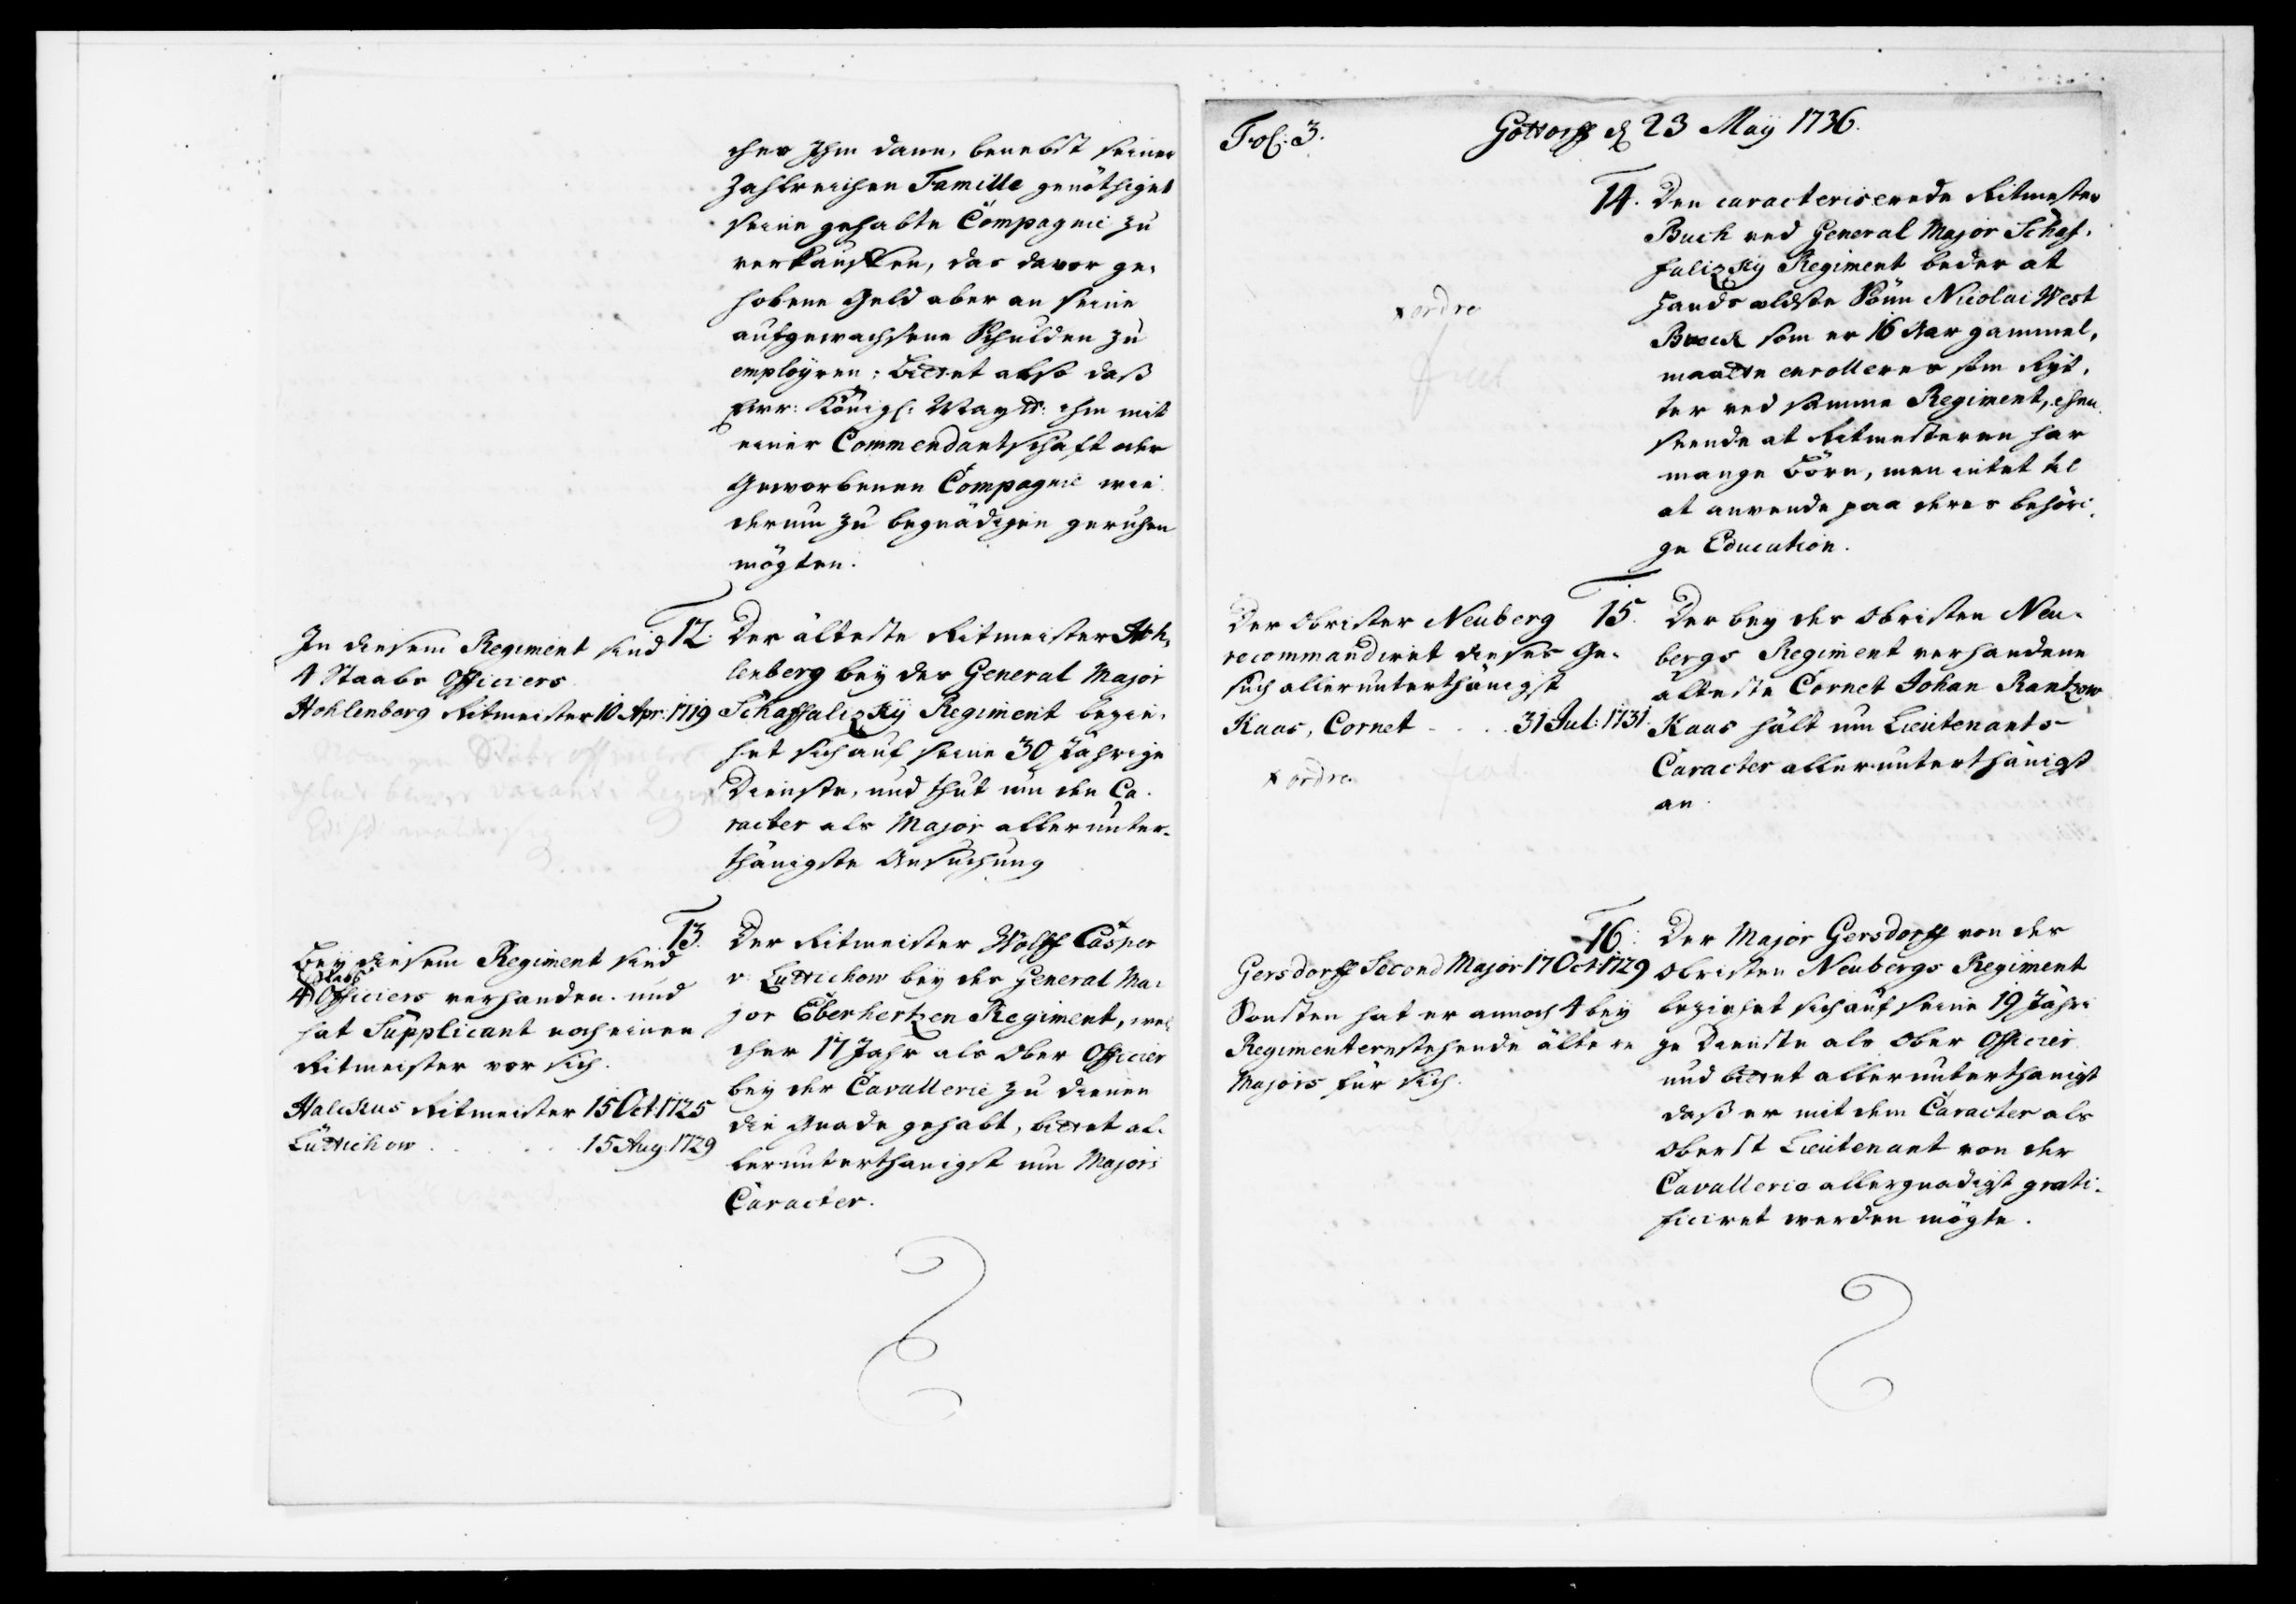 cher Ihm dann, benebst seiner
zahlreichen Famille genöthiget
seine gehabte Compagnie zu
verkauffen, das davor ge¬
hobene Geld aber an seine
aufgewachsene Schulden zu
employren; bittet also daß
Ewr: Königl: Maytt: ihm mit
einer Commendantschaft oder
Geworbenen Compagnie wie
derum zu begnädigen geruhen
mögten.
In diesem Regiment sind
4 Staabs Officiers
Hohlenberg Ritmeister 10 Apr: 1719
12. Der älteste Ritmeister Hoh¬
lenberg bey des General Major
Schaffalizky Regiment bezie¬
het sich auf seine 30 Jährige
Dienste, und thut um den Ca¬
racter als Major allerunter¬
thänigste Ansuchung
Bey diesem Regiment sind
4 Staabs Officiers verhanden und
hat Supplicant noch einen
Ritmeister vor sich.
Halckus Ritmeister 15 Oct. 1725
Lüttichow . . . . 15 Aug. 1729
13. Der Ritmeister Wolff Casper
v: Lüttichow bey des General Ma¬
jor Eberhertzen Regiment, wel
cher 17 Jahr als Ober Officier
bey der Cavallerie zu dienen
die Gnade gehabt, bittet al¬
lerunterthänigst um Majors
Caracter.
Fol: 3.
Gottorff d 23 Maÿ 1736.
14. Den caracteriserede Ritmester
Buch ved General Major Schaf¬
falizky Regiment beder at
hands ældste Sönn Nicolai West
som er 16 Aar gammel,
maatte enrolleres som Ryt¬
ter ved samme Regiment, ehen
seende at Ritmesteren har
mange Börn, men intet til
at anvende paa deres behöri¬
ge Education.
x ordre
fiat
Der Obrister Neuberg
recommandiret dieses Ge¬
such allerunterthänigst
Kaas, Cornet . . . 31 Jul: 1731.
x ordre
fiat
15. Der bey des Obristen Neu¬
bergs Regiment verhandene
älteste Cornet Johan Rantzow
Kaas hält um Lieutenants
Caracter allerunterthänigst
an.
Gersdorff Second Major 17 Oct: 1729
Sonsten hat er annoch 4 bey
Regimentern stehende ältere
Majors für sich.
16. Der Major Gersdorff von des
Obristen Neubergs Regiment
beziehet sich auf seine 19 Jähri
ge Dienste als Ober Officier
und bittet allerunterthänigst
daß er mit dem Caracter als
Oberst Lieutenant von der
Cavallerie allergnädigst grati¬
ficiret werden mögte.